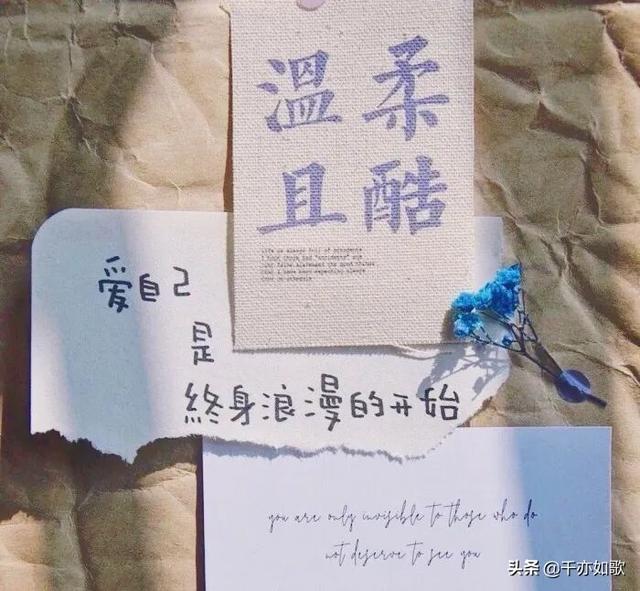 溫柔
且酷
Life is always full of accidents
爱自己
是
終身浪漫的开始
you are only invisible to those who do
not deserve to see you
头条 @千亦如歌